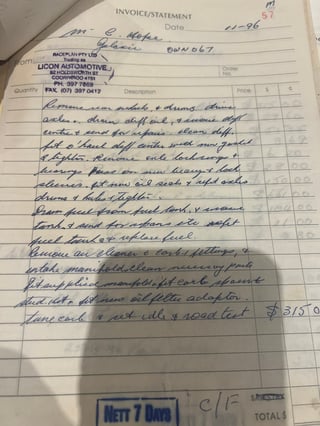 M
57
INVOICE/STATEMENT
Date 11-96
M C Hope
Galaxie OWN 067
From
RACEPLAN PTY LTD
Trading as
LICON AUTOMOTIVE
82 HOLDSWORTH ST
COORPAROO 4151
PH. 397 7869
FAX. (07) 397 0412
Order No.
Quantity Description Price $ c
Remove rear wheels & drums, drive
axles. drain diff oil, & remove diff
centre & send for repairs. clean diff.
fit o'haul diff centre with new gasket
& tighten. Remove axle lockrings &
bearings Press on new bearings & lock
sleeves. fit new oil seals & refit axles
drums & hubs & tighten.
Drain fuel from fuel tank, & remove
tank, & send for repairs etc refit
fuel tank & replace fuel
Remove air cleaner & carb & fittings, &
intake manifold, clean necessary parts
fit supplied manifold, fit carb spacer
fit new oil filter adaptor.
tune carb & set idle & road test $3150
NETT 7 DAYS
C/F
TOTAL $